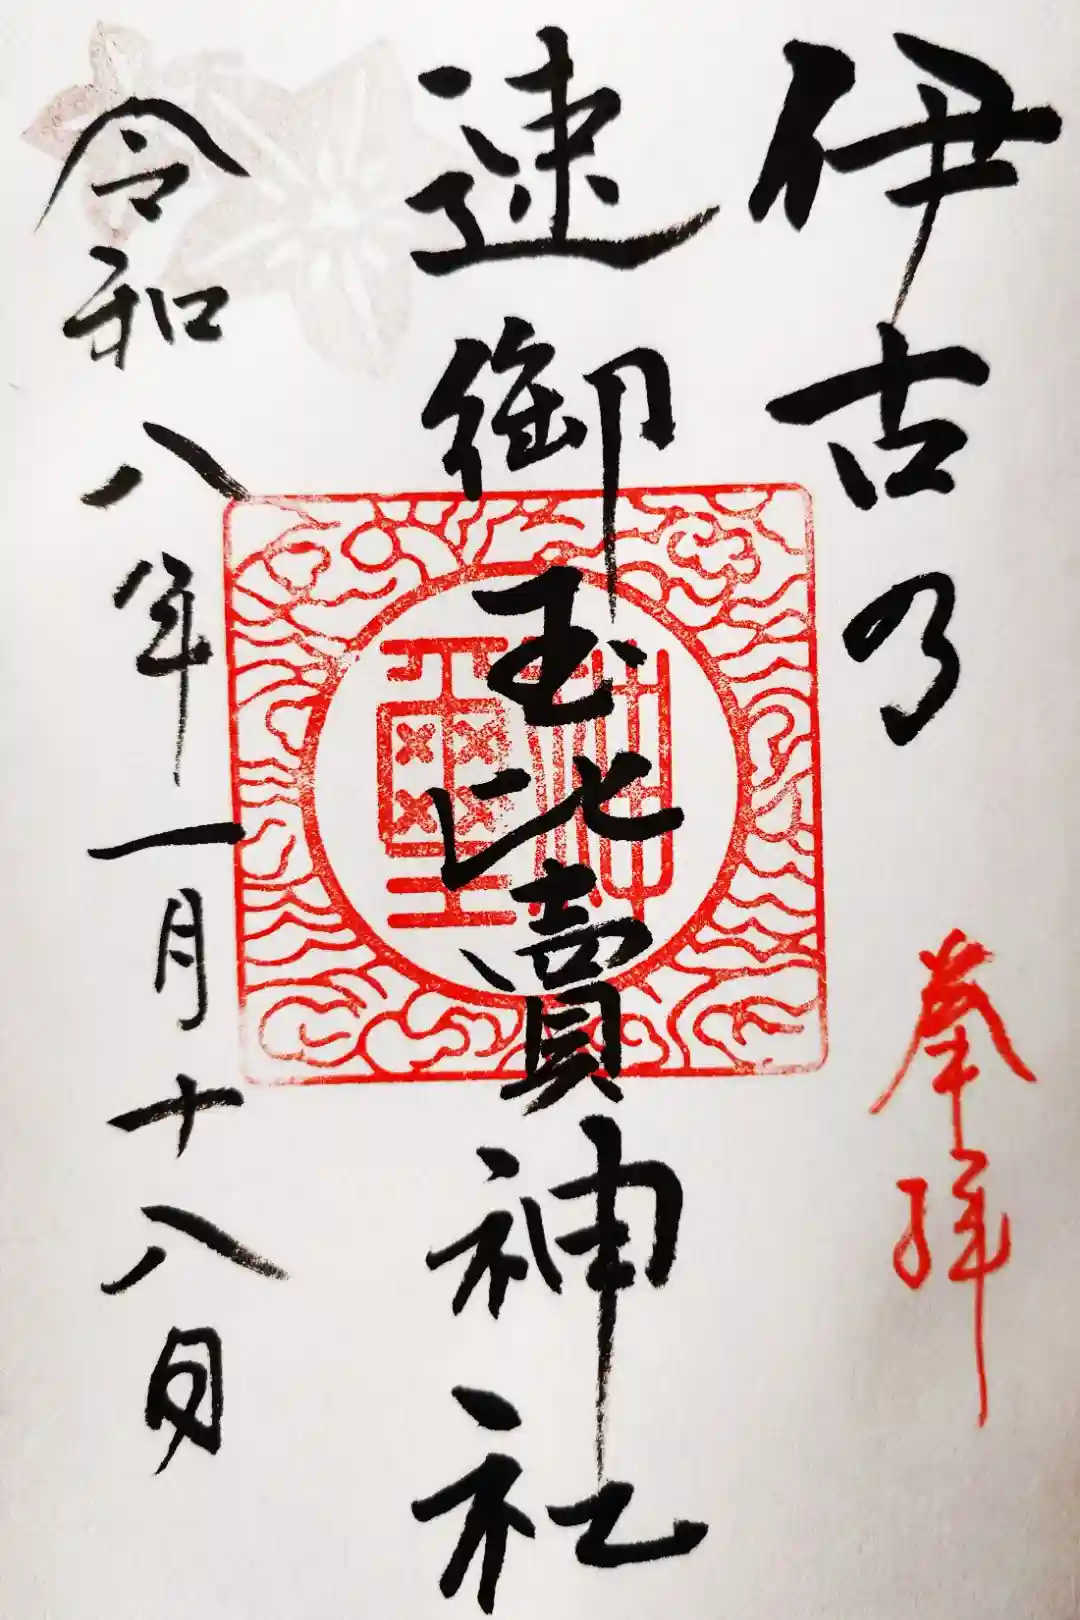 伊古乃
奉拝
速御玉比賣神社
神璽
令和八年一月十八日